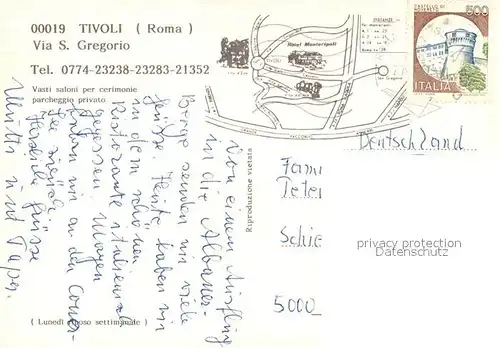 00019 TIVOLI ( Roma )
Via S. Gregorio
Tel. 0774-23238-23283-21352
Vasti saloni per cerimonie
parcheggio privato
Hotel Monteripoli
TIVOLI
DISTANZE
500
ITALIA
Von einem Ausflug
in die Albaner-
Berge senden wir viele
Grüsse. Heute haben wir
in dem schönen
Ristorante italienisch
gegessen. Morgen
fahren wir an den Comer-
See zurück.
Herzliche Grüsse
Mutti und Papa.
Riproduzione vietata
Deutschland
Fami
Peter
Schie
5000
privacy protection
Datenschutz
( Lunedì riposo settimanale )